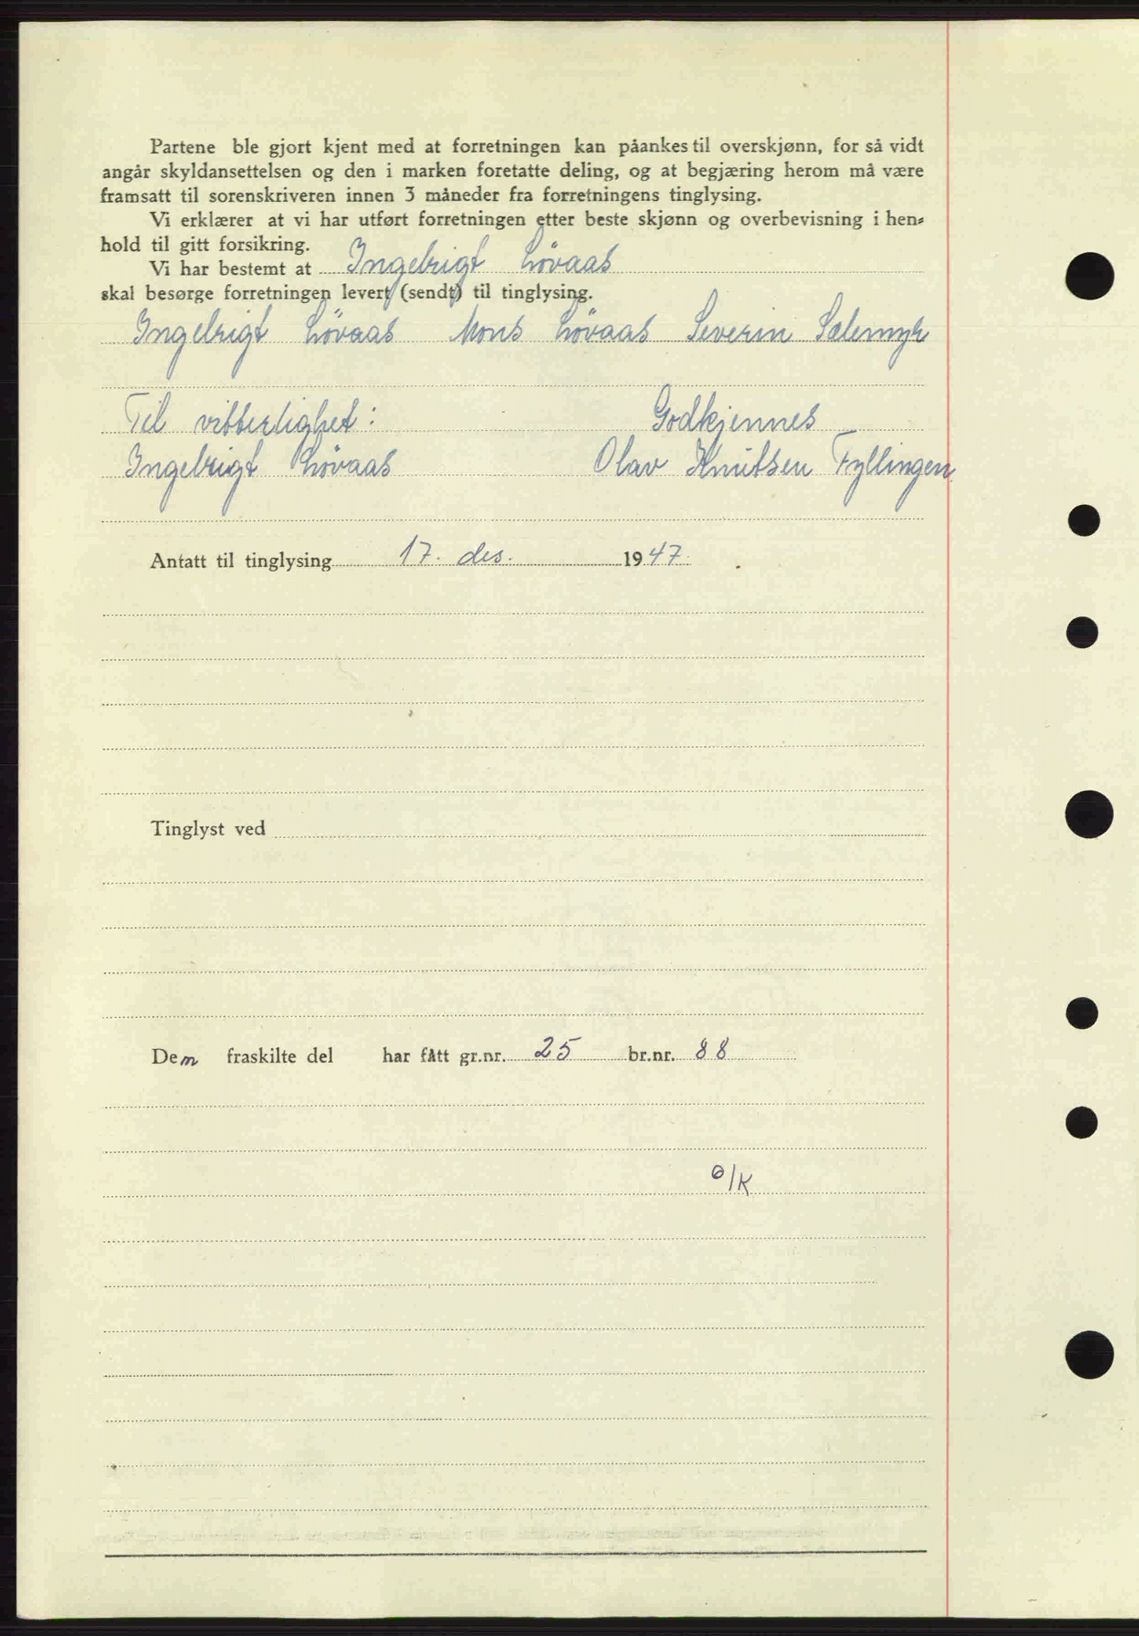 Partene ble gjort kjent med at forretningen kan påankes til overskjønn, for så vidt
angår skyldansettelsen og den i marken foretatte deling, og at begjæring herom må være
framsatt til sorenskriveren innen 3 måneder fra forretningens tinglysing.
Vi erklærer at vi har utført forretningen etter beste skjønn og overbevisning i hen-
hold til gitt forsikring.
Vi har bestemt at Ingebrigt Lövaas
skal besørge forretningen levert (sendt) til tinglysing.
Ingebrigt Lövaas Mons Lövaas Severin Sælemyr
Til vitterlighet: Godkjennes
Ingebrigt Lövaas Olav Knutsen Fyllingen
Antatt til tinglysing 17. des. 1947.
Tinglyst ved
Den fraskilte del har fått gr.nr. 25 br.nr. 88
o/K